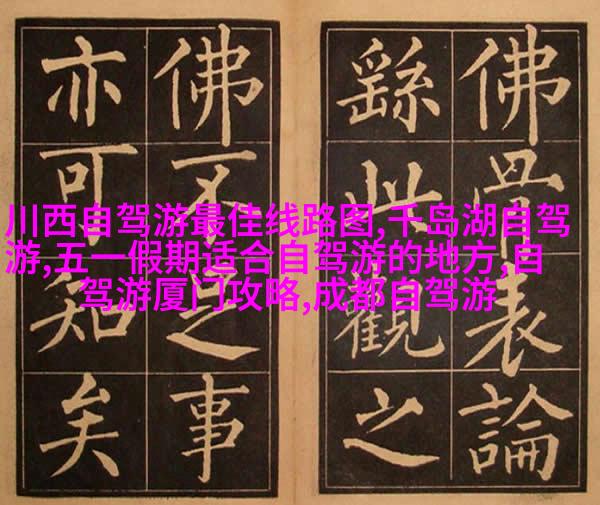 佛骨表論
繇此觀之
佛不足事
亦可知矣
川西自驾游最佳线路图,千岛湖自驾
游,五一假期适合自驾游的地方,自
驾游厦门攻略,成都自驾游